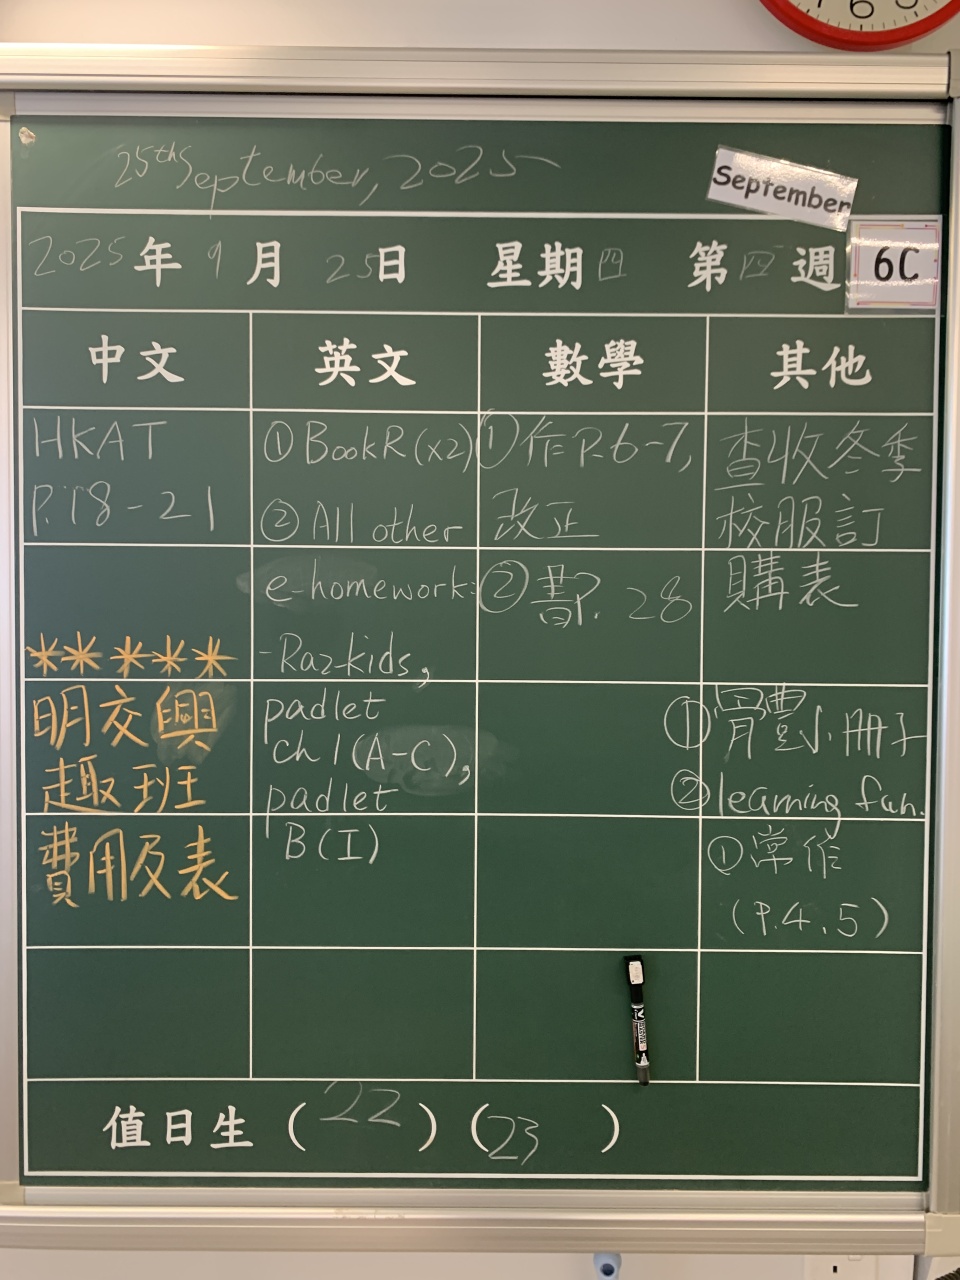 25th September, 2025
September
2025年9月25日 星期四 第四週
6C
中文
HKAT
P.18-21
*****
明交興
趣班
費用及表
英文
①BookR(x2)
②All other
e-homework:
-Raz-kids,
padlet
ch1(A-C),
padlet
B(I)
數學
①作P.6-7,
改正
②書P. 28
其他
查收冬季
校服訂
購表
①小冊子
②learning fun.
①常作
(P.4.5)
值日生(22)(23)